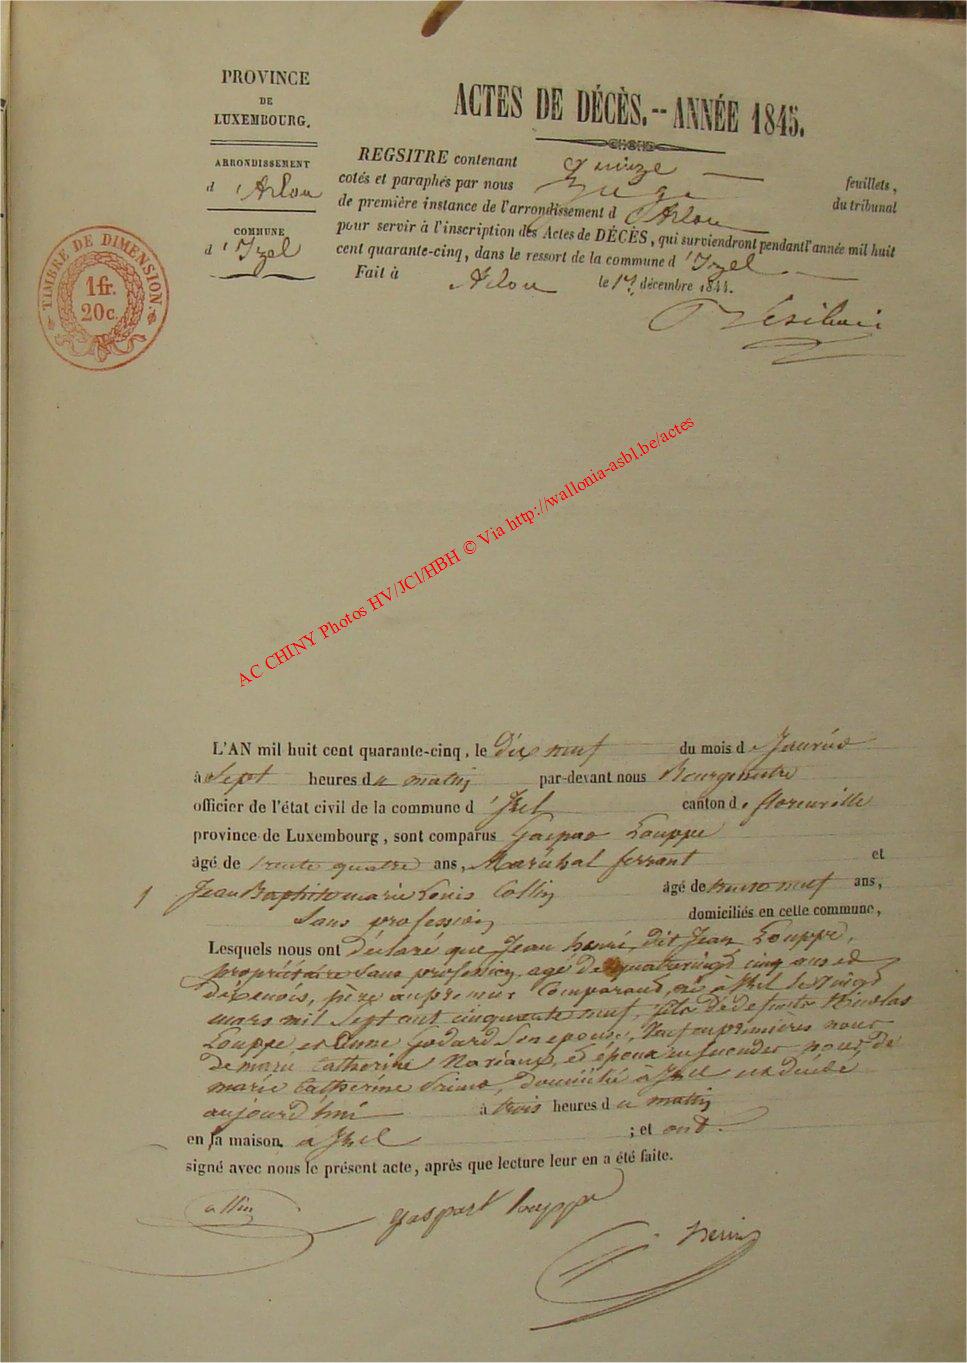 PROVINCE
DE
LUXEMBOURG.
ARRONDISSEMENT
d'Arlon
COMMUNE
d'Izel
TIMBRE DE DIMENSION
1 fr.
20 c.
ACTES DE DÉCÈS.-- ANNÉE 1845.
REGSITRE contenant quinze feuillets,
cotés et paraphés par nous Juge du tribunal
de première instance de l'arrondissement d'Arlon
pour servir à l'inscription des Actes de DÉCÈS, qui surviendront pendant l'année mil huit
cent quarante-cinq, dans le ressort de la commune d'Izel
Fait à Arlon le 17 décembre 1844.
AC CHINY Photos HV/JCl/HBH © Via http://wallonia-asbl.be/actes
L'AN mil huit cent quarante-cinq, le dix neuf du mois de Janvier
à Sept heures du matin par-devant nous Bourgmestre
officier de l'état civil de la commune d'Izel canton de florenville
province de Luxembourg, sont comparus Gaspar Louppe
âgé de trente quatre ans, Maréchal ferrant et
1 Jean Baptiste marie Louis Collin âgé de neuf ans,
Sans profession domiciliés en cette commune,
Lesquels nous ont déclaré que Jean henri dit Jean Louppe,
propriétaire sans profession, agé de quatrevingt cinq ans et
dix mois, père au premier Comparant, né à Izel le vingt
mars mil sept cent cinquante neuf, fils de defunts Nicolas
Louppe et Anne Godard son epouse, Veuf en premières noces
de marie Catherine et époux en secondes noces de
marie Catherine domicilié à Izel est décédé
aujourd'hui à trois heures du matin
en sa maison à Izel ; et ont
signé avec nous le présent acte, après que lecture leur en a été faite.
Collin gaspart louppe